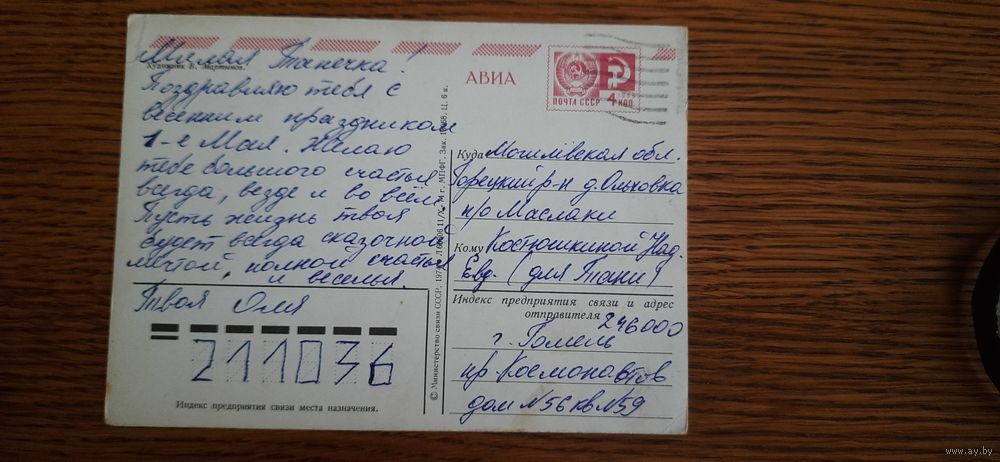 Милая Танечка!
Художник Е. Мартынов.
Поздравляю тебя с
весенним праздником
1-е Мая. Желаю
тебе большого счастья
всегда, везде и во всём.
Пусть жизнь твоя
будет всегда сказочной
мечтой, полной счастья
и веселья.
Твоя Оля
211036
Индекс предприятия связи места назначения.
© Министерство связи СССР, 1974. МПФГ. Зак. Ц. 6 к.
АВИА
ПОЧТА СССР
4 КОП
Куда Могилёвская обл.
Горецкий р-н д. Ольховка
п/о Маслаки
Кому Костюшкиной Над.
Евд. (для Тани)
Индекс предприятия связи и адрес
отправителя 246000
г. Гомель
пр. Космонавтов
дом №56 кв №59
www.ay.by